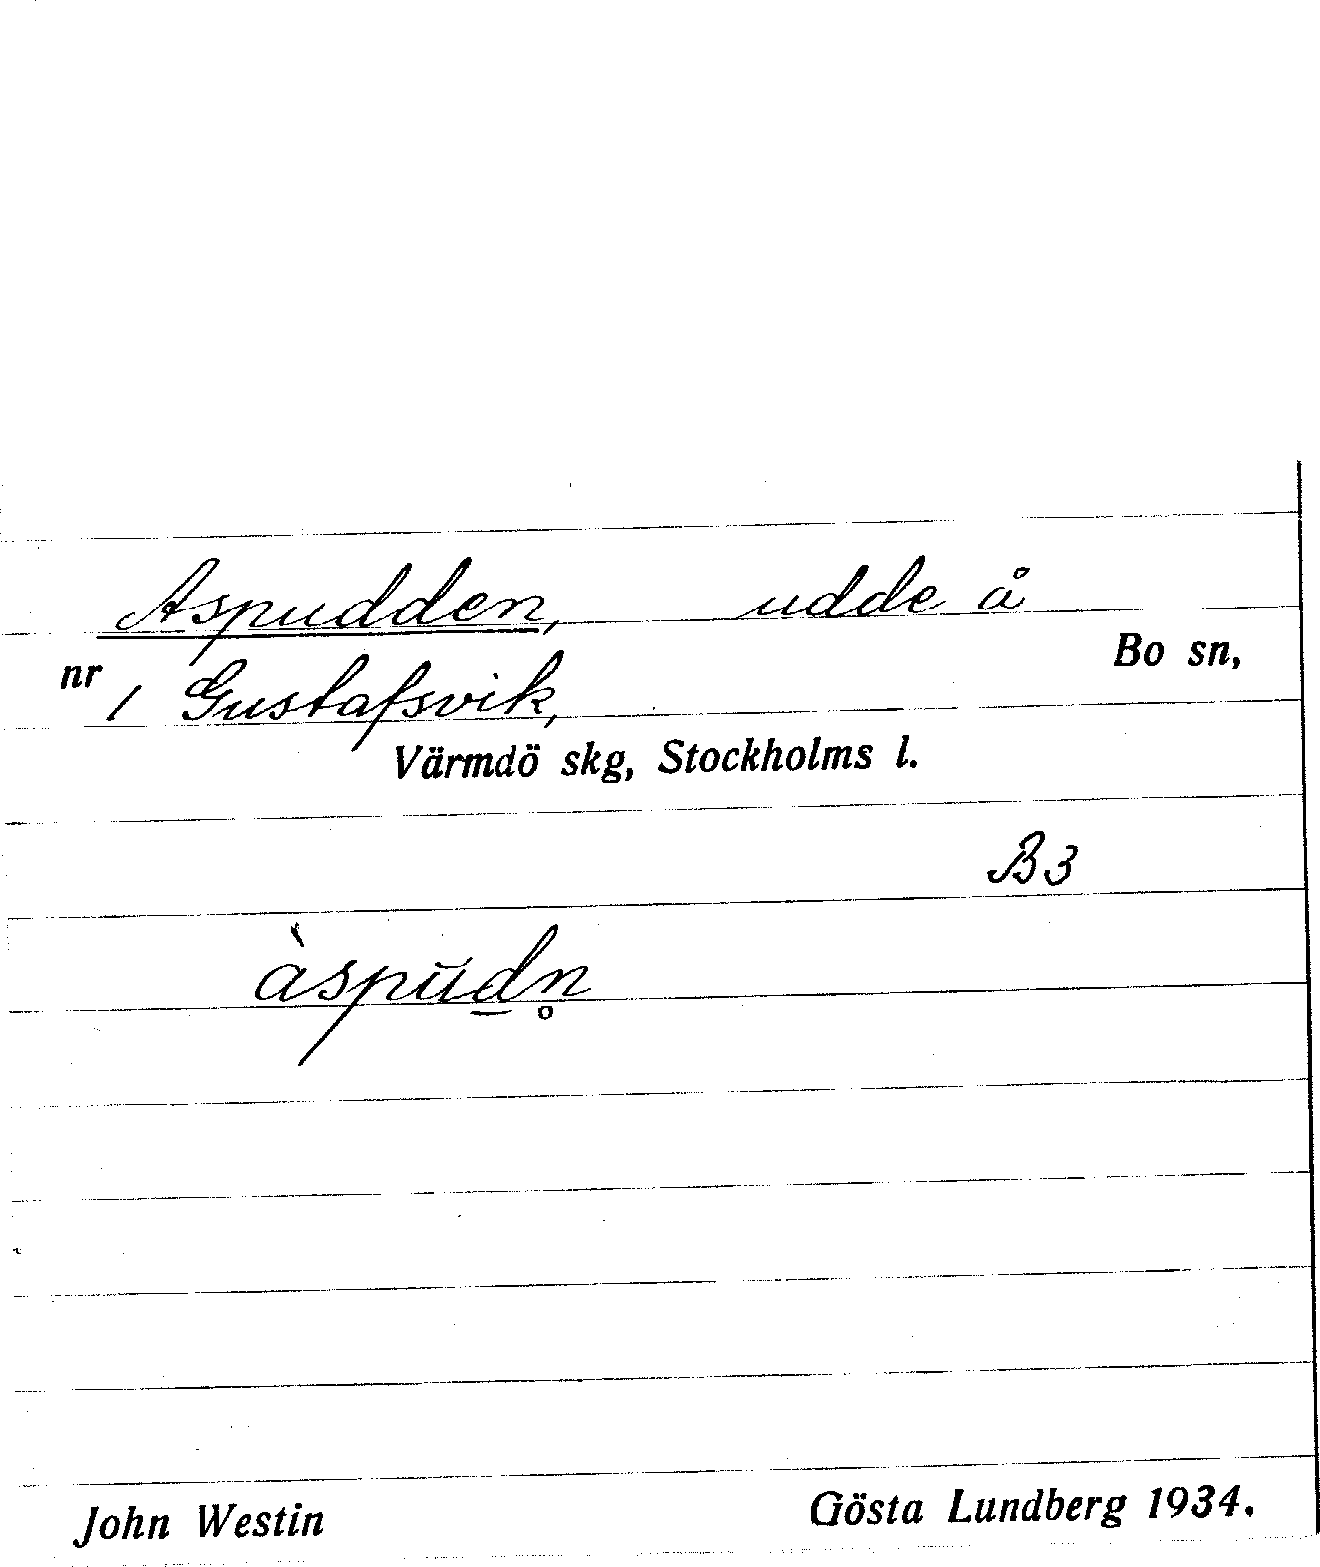 Aspudden, udde å
Bo sn,
nr 1 Gustafsvik,
Värmdö skg, Stockholms l.
B3
àspŭd̲n̥
John Westin Gösta Lundberg 1934.